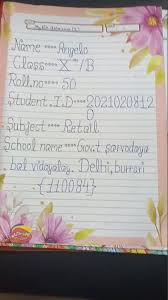 Name ···· Angelo
Class ···· X th/B
Roll.no ···· 50
Student.I.D ···· 2021020812
0
Subject ···· Retail
School name ···· Govt sarvodaya
bal vidyalay. Delhi, burrari
{110084}